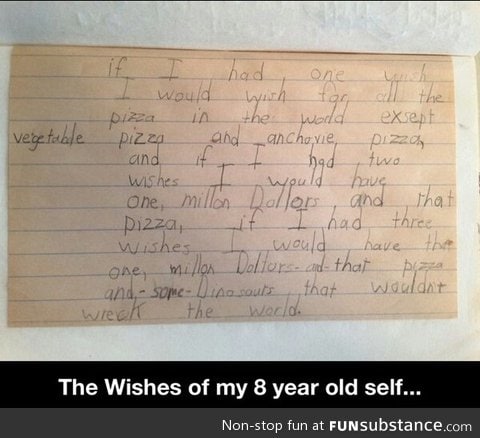 if I had one wish
I would wish for all the
pizza in the world exsept
vegetable pizza and anchovie, pizza,
and if I had two
wishes I would have
one, millon Dollors, and that
pizza, if I had three
wishes I would have the
one, millon Dollors- and- that pizza
and,- some- Dinosaurs that wouldn't
wreck the world.
The Wishes of my 8 year old self...
Non-stop fun at FUNsubstance.com